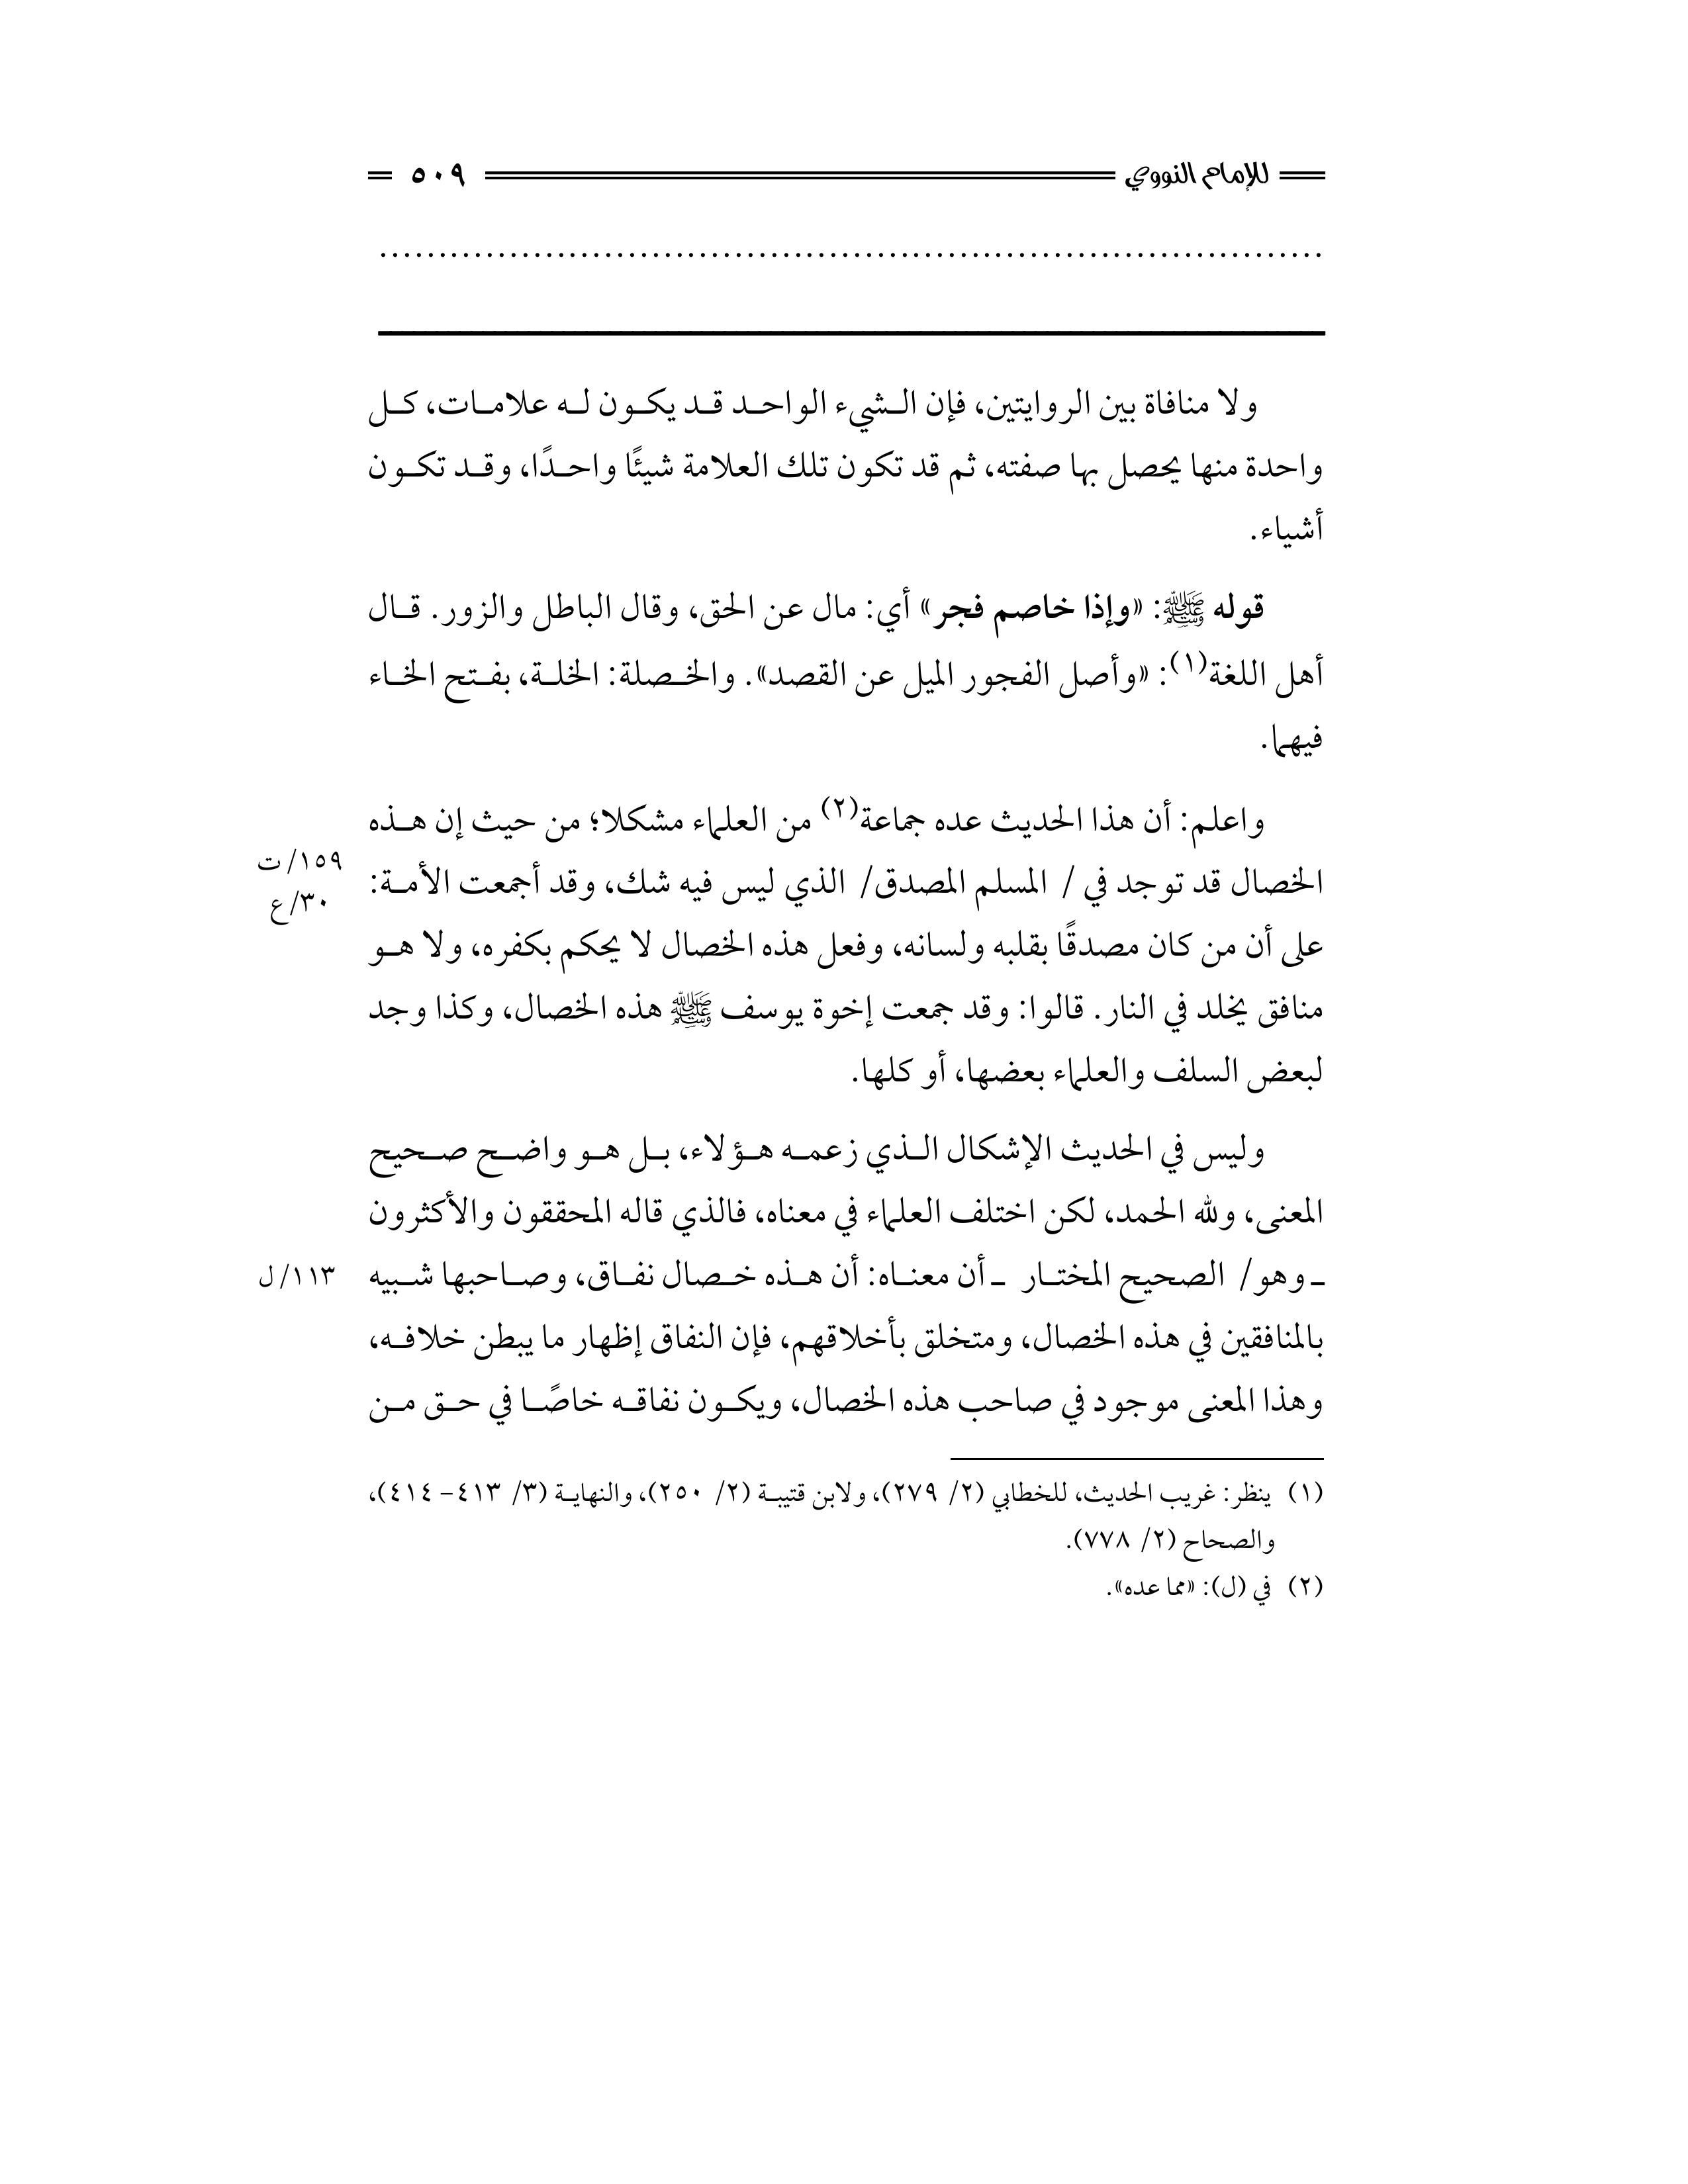 للإمام النووي ٥٠٩
................................................................................
ولا منافاة بين الروايتين، فإن الشيء الواحد قد يكون له علامات، كل
واحدة منها يحصل بها صفته، ثم قد تكون تلك العلامة شيئًا واحدًا، وقد تكون
أشياء.
قوله ﷺ: «وإذا خاصم فجر» أي: مال عن الحق، وقال الباطل والزور. قال
أهل اللغة(١): «وأصل الفجور الميل عن القصد». والخصلة: الخلة، بفتح الخاء
فيهما.
واعلم: أن هذا الحديث عده جماعة(٢) من العلماء مشكلا؛ من حيث إن هذه
الخصال قد توجد في / المسلم المصدق/ الذي ليس فيه شك، وقد أجمعت الأمة:
١٥٩/ ت
٣٠/ ع
على أن من كان مصدقًا بقلبه ولسانه، وفعل هذه الخصال لا يحكم بكفره، ولا هو
منافق يخلد في النار. قالوا: وقد جمعت إخوة يوسف ﷺ هذه الخصال، وكذا وجد
لبعض السلف والعلماء بعضها، أو كلها.
وليس في الحديث الإشكال الذي زعمه هؤلاء، بل هو واضح صحيح
المعنى، ولله الحمد، لكن اختلف العلماء في معناه، فالذي قاله المحققون والأكثرون
ـ وهو/ الصحيح المختار ـ أن معناه: أن هذه خصال نفاق، وصاحبها شبيه
١١٣/ ل
بالمنافقين في هذه الخصال، ومتخلق بأخلاقهم، فإن النفاق إظهار ما يبطن خلافه،
وهذا المعنى موجود في صاحب هذه الخصال، ويكون نفاقه خاصًا في حق من
(١) ينظر: غريب الحديث، للخطابي (٢/ ٢٧٩)، ولابن قتيبة (٢/ ٢٥٠)، والنهاية (٣/ ٤١٣- ٤١٤)،
والصحاح (٢/ ٧٧٨).
(٢) في (ل): «مما عده».